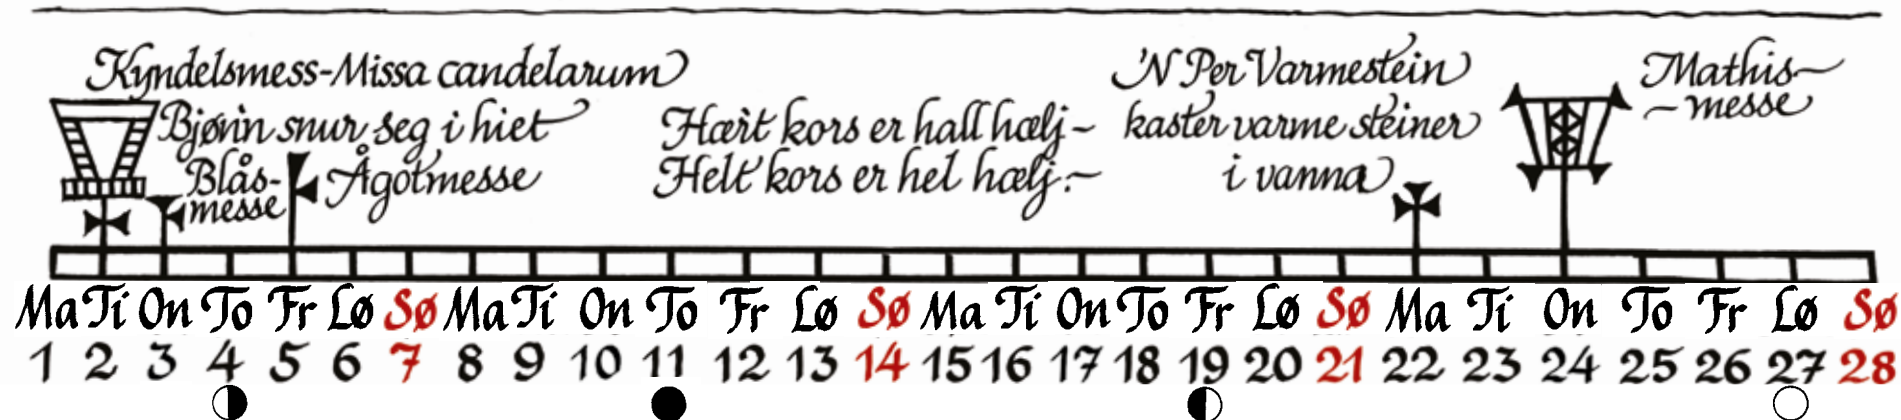 Kyndelsmess-Missa candelarum
Bjønn snur seg i hiet
Blås-
messe
Ågotmesse
Hært kors er hall hælj~
Helt kors er hel hælj.~
'N Per Varmestein
kaster varme steiner
i vanna
Mathis~
~messe
Ma Ti On To Fr Lø Sø Ma Ti On To Fr Lø Sø Ma Ti On To Fr Lø Sø Ma Ti On To Fr Lø Sø
1 2 3 4 5 6 7 8 9 10 11 12 13 14 15 16 17 18 19 20 21 22 23 24 25 26 27 28